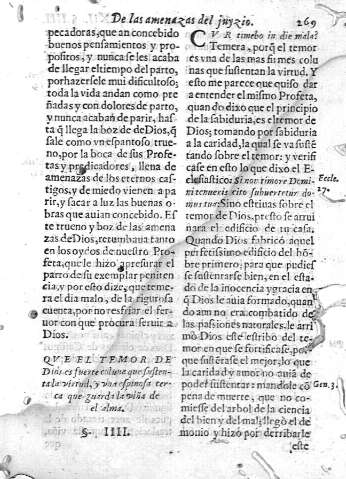 De las amenazas del juyzio. 269
pecadoras, que an concebido
buenos pensamientos y pro-
positos, y nunca se les acaba
de llegar el tiempo del parto,
por hazersele mui dificultoso;
toda la vida andan como pre
ñadas y con dolores de parto,
y nunca acaban de parir, has-
ta q̃ llega la boz de de Dios, q̃
sale como vn espantoso true-
no, por la boca de sus Profe-
tas y predicadores, llena de
amenazas de los eternos cas-
tigos, y de miedo vienen a pa-
rir, y sacar a luz las buenas o
bras que auian concebido. Es
te trueno y boz de las amena
zas de Dios, retumbaua tanto
en los oydos de nuestro Pro-
feta, que le hizo apresurar el
parto de su exemplar peniten
cia, y por esto dize, que teme-
ra el dia malo, de la rigurosa
cuenta, por no resfriar el fer-
uor con que procura seruir a
Dios.
QVE EL TEMOR DE
Dios es fuerte coluna que susten-
ta la virtud, y vna espinosa cer-
ca que guarda la viña de
el alma.
§. IIII.
CVR timebo in die mala?
Temera, porq̃ el temor
es vna de las mas firmes colu
nas que sustentan la virtud. Y
esso me parece que quiso dar
a entender el mismo Profeta,
quando dixo que el principio
de la sabiduria, es el temor de
Dios; tomando por sabiduria
a la caridad, la qual se va susté
tando sobre el temor: y verifi
case en esto lo que dixo el E-
clesiastico: Si non timore Domi-
ni tenueris cito subuertetur do-
mus tua: Si no estiuas sobre el
temor de Dios, presto se arrui
nara el edificio de tu casa.
Quando Dios fabricó aquel
perfetissimo edificio del hõ-
bre primero, para que pudies-
se sustentarse bien, en el esta-
do de la inocencia y gracia en
q̃ Dios le auia formado, quan
do aun no era combatido de
las passiones naturales, le arri
mó Dios este estribo del te-
mor en que se fortificase, por-
que sustētase el mejor, lo que
la caridad y amor no auia de
poder sustentar: mandole cõ
pena de muerte, que no co-
miesse del arbol de la ciencia
del bien y del mal; llegó el de
monio y hizo por derribarle
este
Eccle.
27.
Gen. 3.